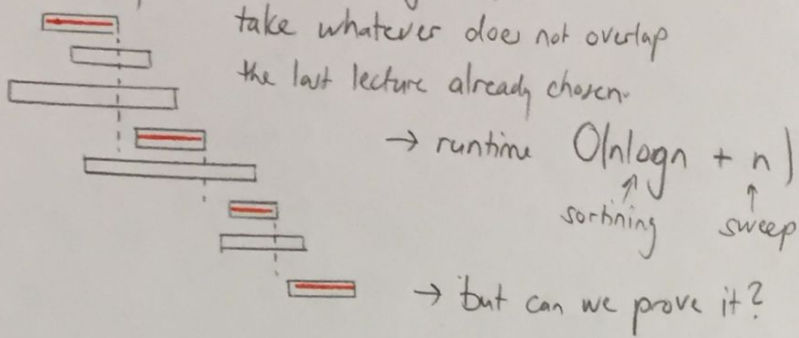 take whatever does not overlap
the last lecture already chosen.
→ runtime O(nlogn + n)
sortining
sweep
→ but can we prove it?